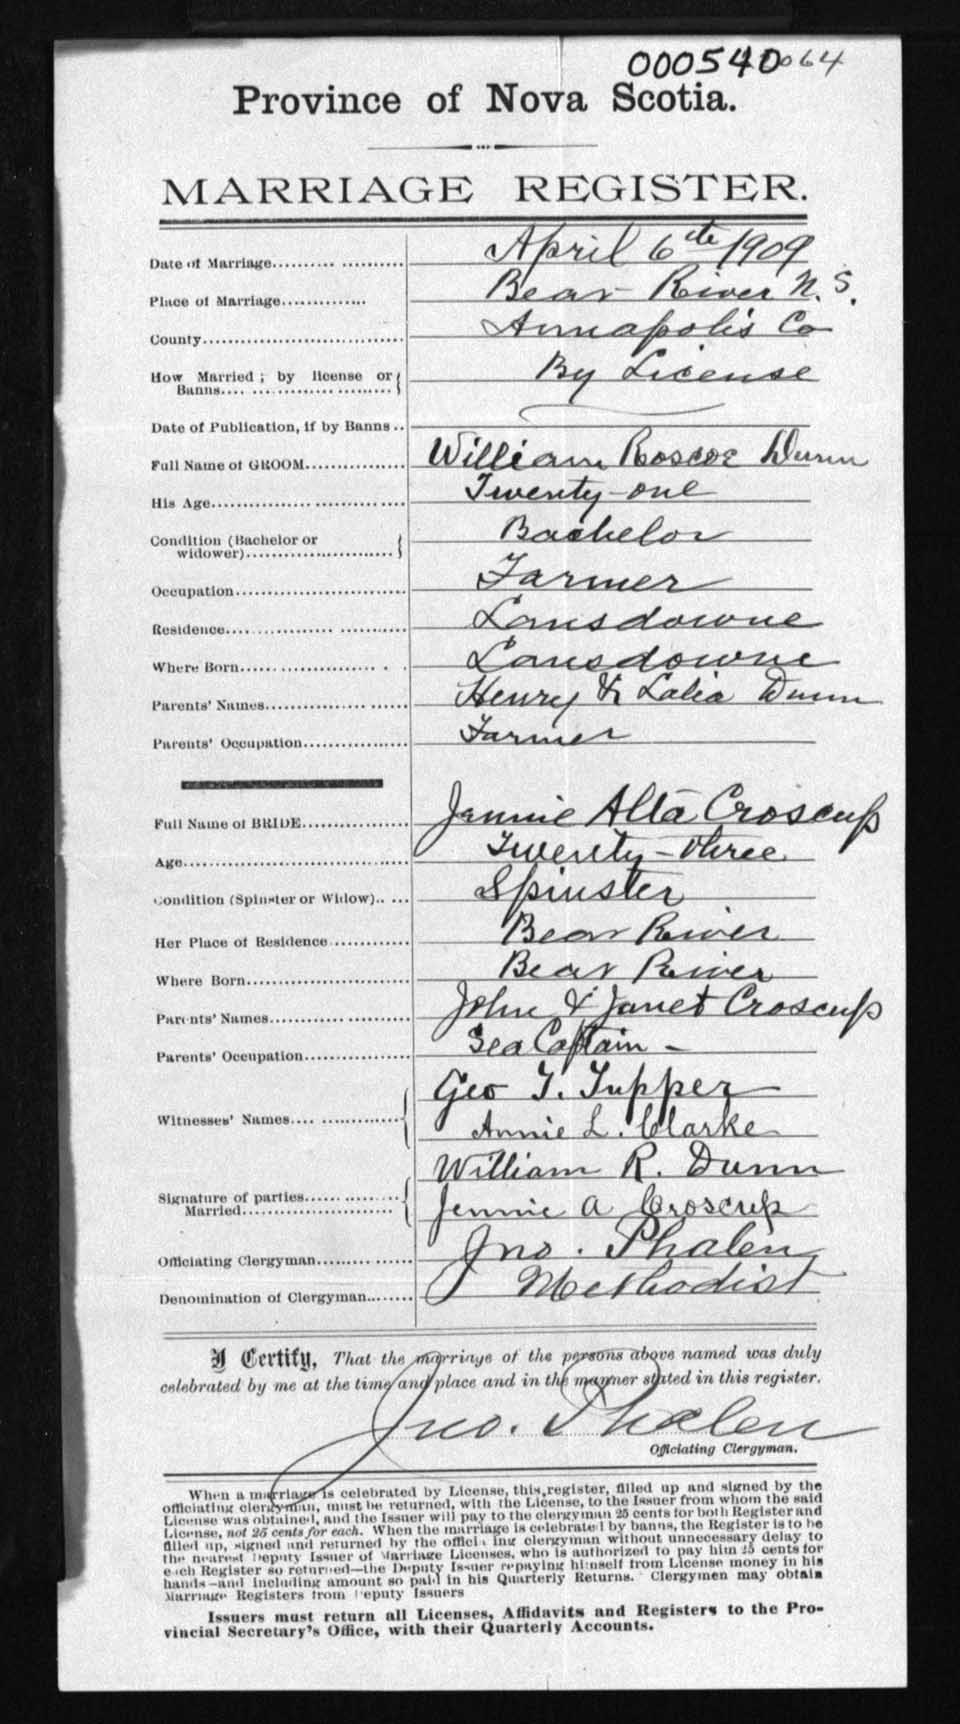 000540 064
Province of Nova Scotia.
MARRIAGE REGISTER.
Date of Marriage April 6th 1909
Place of Marriage Bear River N.S.
County Annapolis Co
How Married; by license or Banns By License
Date of Publication, if by Banns
Full Name of GROOM William Roscoe Dunn
His Age Twenty-one
Condition (Bachelor or widower) Bachelor
Occupation Farmer
Residence Lansdowne
Where Born Lansdowne
Parents' Names Henry & Lalia Dunn
Parents' Occupation Farmer
Full Name of BRIDE Jennie Alta Croscup
Age Twenty-three
Condition (Spinster or Widow) Spinster
Her Place of Residence Bear River
Where Born Bear River
Parents' Names John & Janet Croscup
Parents' Occupation Sea Captain -
Witnesses' Names Geo T. Tupper
Annie L. Clarke
Signature of parties Married William R. Dunn
Jennie A Croscup
Officiating Clergyman Jno. Phalen
Denomination of Clergyman Methodist
I Certify, That the marriage of the persons above named was duly
celebrated by me at the time and place and in the manner stated in this register.
Jno. Phalen
Officiating Clergyman.
When a marriage is celebrated by License, this register, filled up and signed by the
officiating clergyman, must be returned, with the License, to the Issuer from whom the said
License was obtained, and the Issuer will pay to the clergyman 25 cents for both Register and
License, not 25 cents for each. When the marriage is celebrated by banns, the Register is to be
filled up, signed and returned by the officiating clergyman without unnecessary delay to
the nearest Deputy Issuer of Marriage Licenses, who is authorized to pay him 25 cents for
each Register so returned—the Deputy Issuer repaying himself from License money in his
hands—and including amount so paid in his Quarterly Returns. Clergymen may obtain
Marriage Registers from Deputy Issuers
Issuers must return all Licenses, Affidavits and Registers to the Pro-
vincial Secretary's Office, with their Quarterly Accounts.